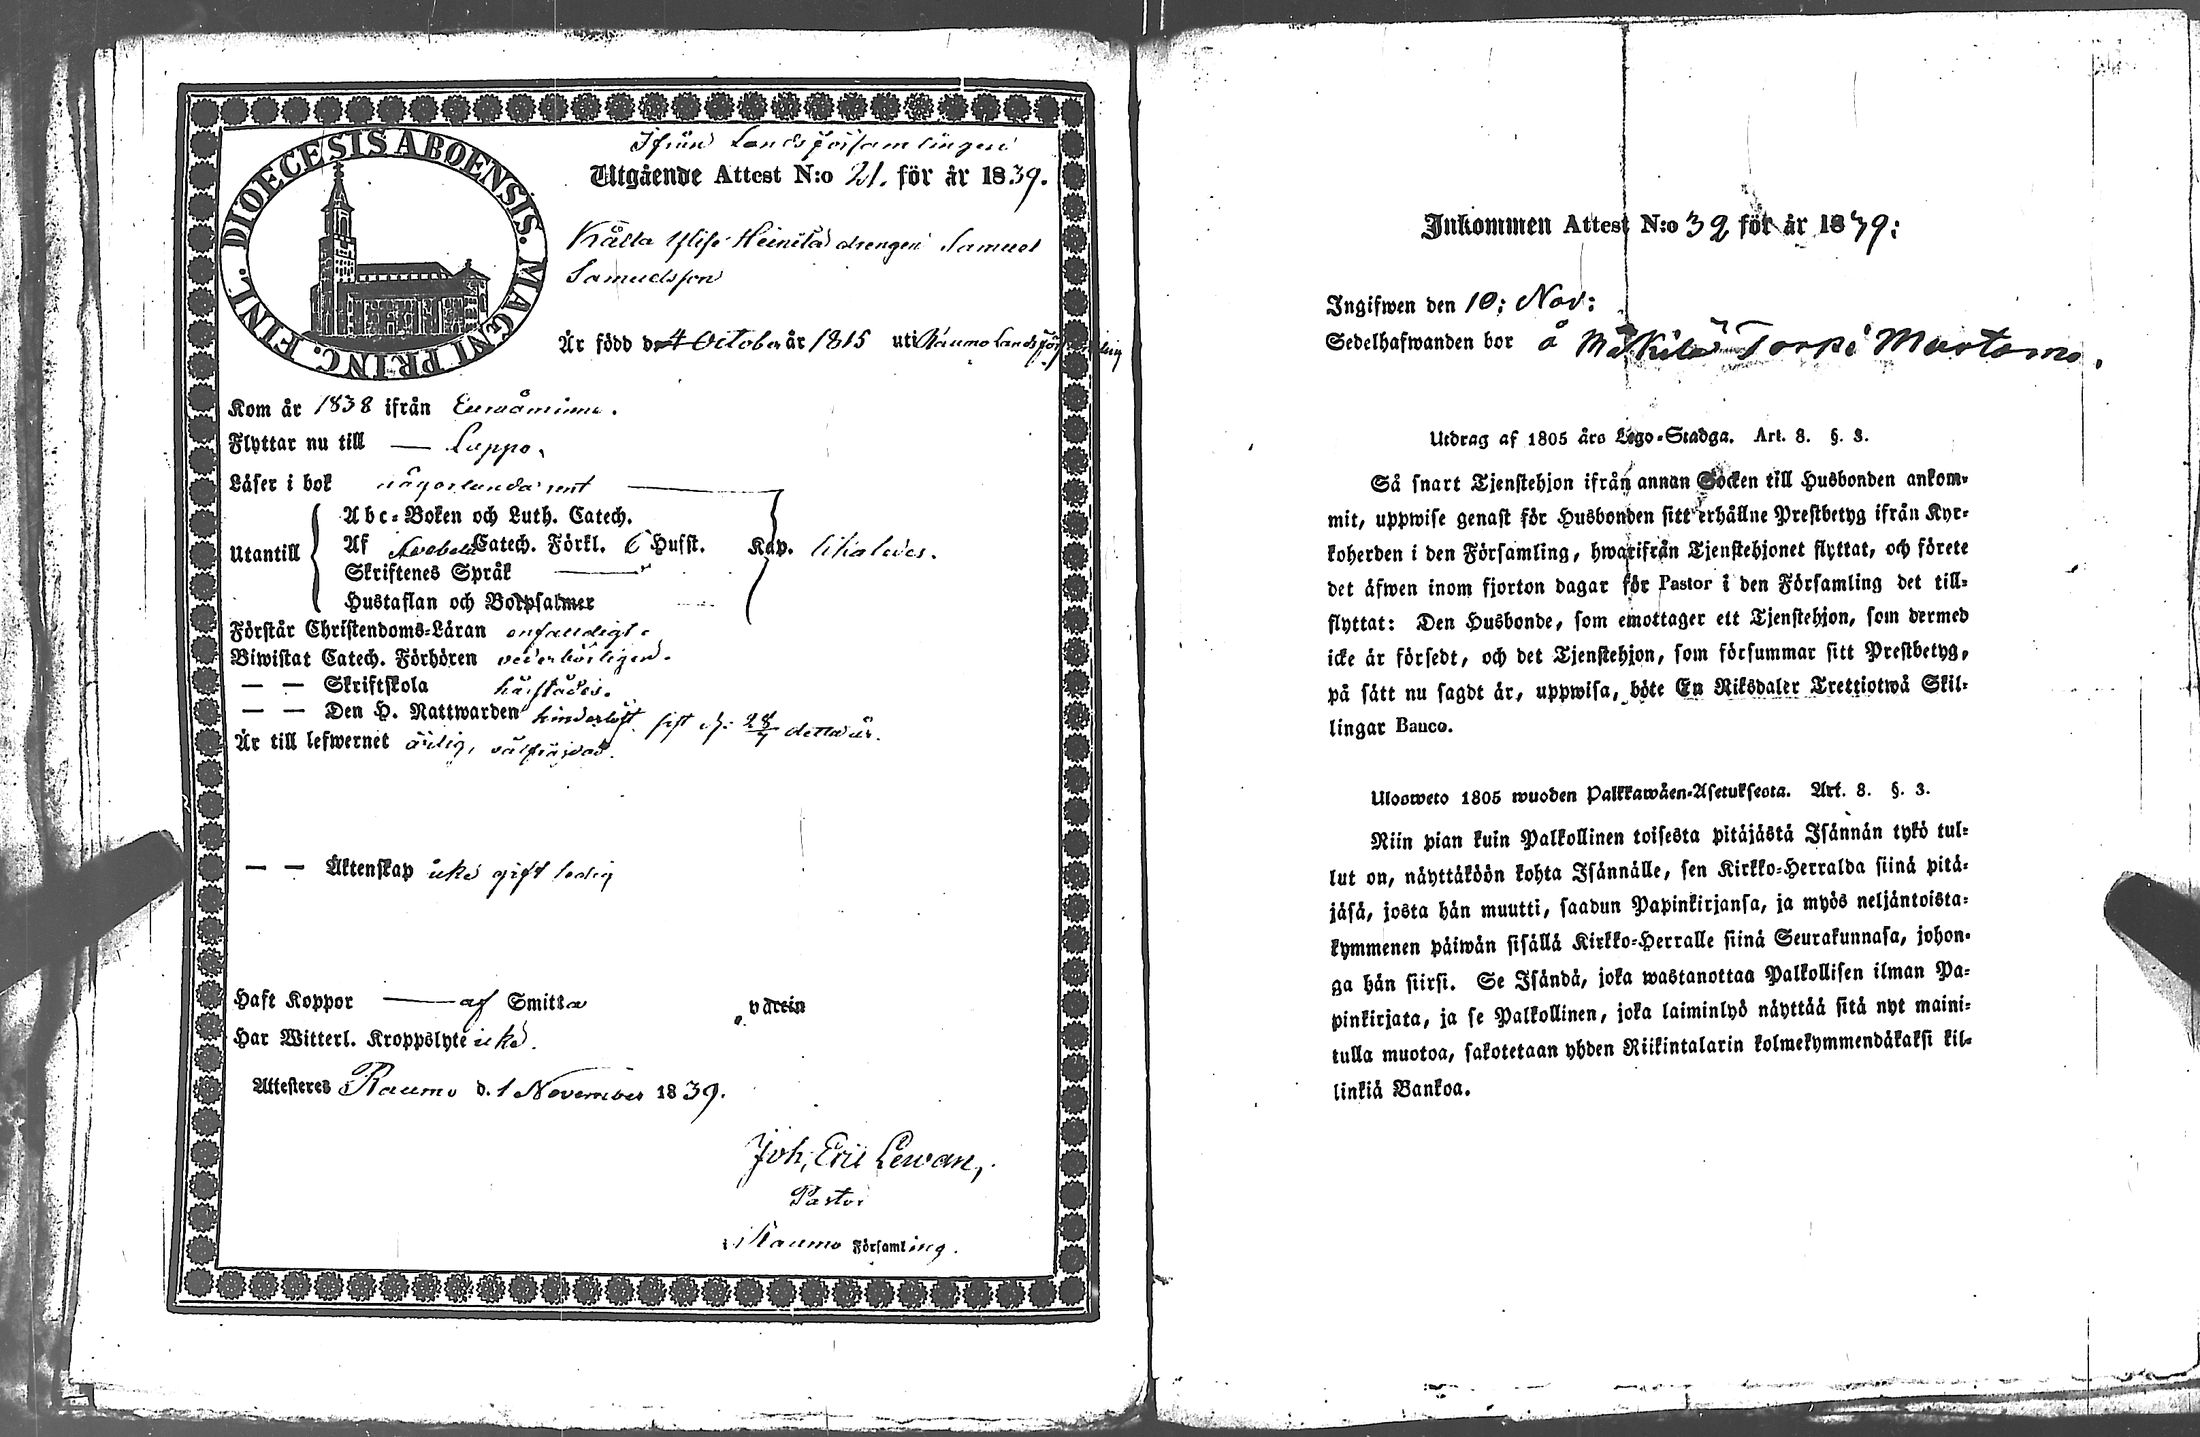 DIOECESIS ABOENSIS. MAGNI PRINC. FINL.
Ifrån Landsförsamlingen
Utgående Attest N:o 21. för år 1839.
Heinilä drengen Samuel
Samuelsson
Är född d. 4 October år 1815 uti Raumo Landsförsamling
Kom år 1838 ifrån Euraåminne.
Flyttar nu till — Lappo.
Läser i bok någorlunda rent
Utantill
Abc-Boken och Luth. Catech.
Af Svebelii Catech. Förkl. 6 Hufst. Kap. likaledes.
Skriftenes Språk
Hustaflan och Botpsalmer
Förstår Christendoms-Läran enfaldigt.
Biwistat Catech. Förhören vederbörligen.
— — Skriftskola härstädes.
— — Den H. Nattwarden hinderlöst sist d. 28/7 detta år.
Är till lefwernet ärlig, välfrejdad.
— — Äktenskap icke gift ledig
Haft Koppor — af Smitta
vaccin
Har Witterl. Kroppslyte icke.
Attesteres Raumo d. 1 November 1839.
Joh. Eric Lewan,
Pastor
i Raumo Församling.
Inkommen Attest N:o 32 för år 1839:
Ingifwen den 10: Nov:
Sedelhafwanden bor å Mäkilä Torp i Murtamo.
Utdrag af 1805 års Lego-Stadga. Art. 8. §. 3.
Så snart Tjenstehjon ifrån annan Socken till Husbonden ankom-
mit, uppwise genast för Husbonden sitt erhållne Prestbetyg ifrån Kyr-
koherden i den Församling, hwarifrån Tjenstehjonet flyttat, och förete
det äfwen inom fjorton dagar för Pastor i den Församling det till-
flyttat: Den Husbonde, som emottager ett Tjenstehjon, som dermed
icke är försedt, och det Tjenstehjon, som försummar sitt Prestbetyg,
på sätt nu sagdt är, uppwisa, böte En Riksdaler Trettiotwå Skil-
lingar Banco.
Uloswето 1805 wuoden Palkkawäen-Asetuksesta. Art. 8. §. 3.
Niin pian kuin Palkollinen toisesta pitäjästä Isännän tykö tul-
lut on, näyttäköön kohta Isännälle, sen Kirkko-Herralda siinä pitä-
jäsä, josta hän muutti, saadun Papinkirjansa, ja myös neljäntoista-
kymmenen päiwän sisällä Kirkko-Herralle siinä Seurakunnasa, johon-
ga hän siirsi. Se Isändä, joka wastanottaa Palkollisen ilman Pa-
pinkirjata, ja se Palkollinen, joka laiminlyö näyttää sitä nyt maini-
tulla muotoa, sakotetaan yhden Riikintalarin kolmekymmendäkaksi kil-
linkiä Bankoa.